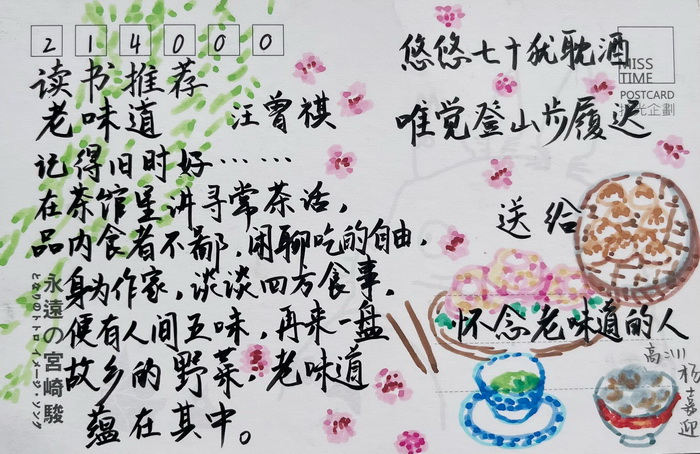 214000
读书推荐
老味道 汪曾祺
记得旧时好……
在茶馆里讲寻常茶话，
品内食者不鄙，闲聊吃的自由，
身为作家，谈谈四方食事，
便有人间五味，再来一盘
故乡的野菜，老味道
蕴在其中。
永遠の宮崎駿
となりのトトロ イメージ・ソング
悠悠七十犹耽酒
唯觉登山步履迟
送给
怀念老味道的人
MISS
TIME
POSTCARD
光企劃
杨嘉迎